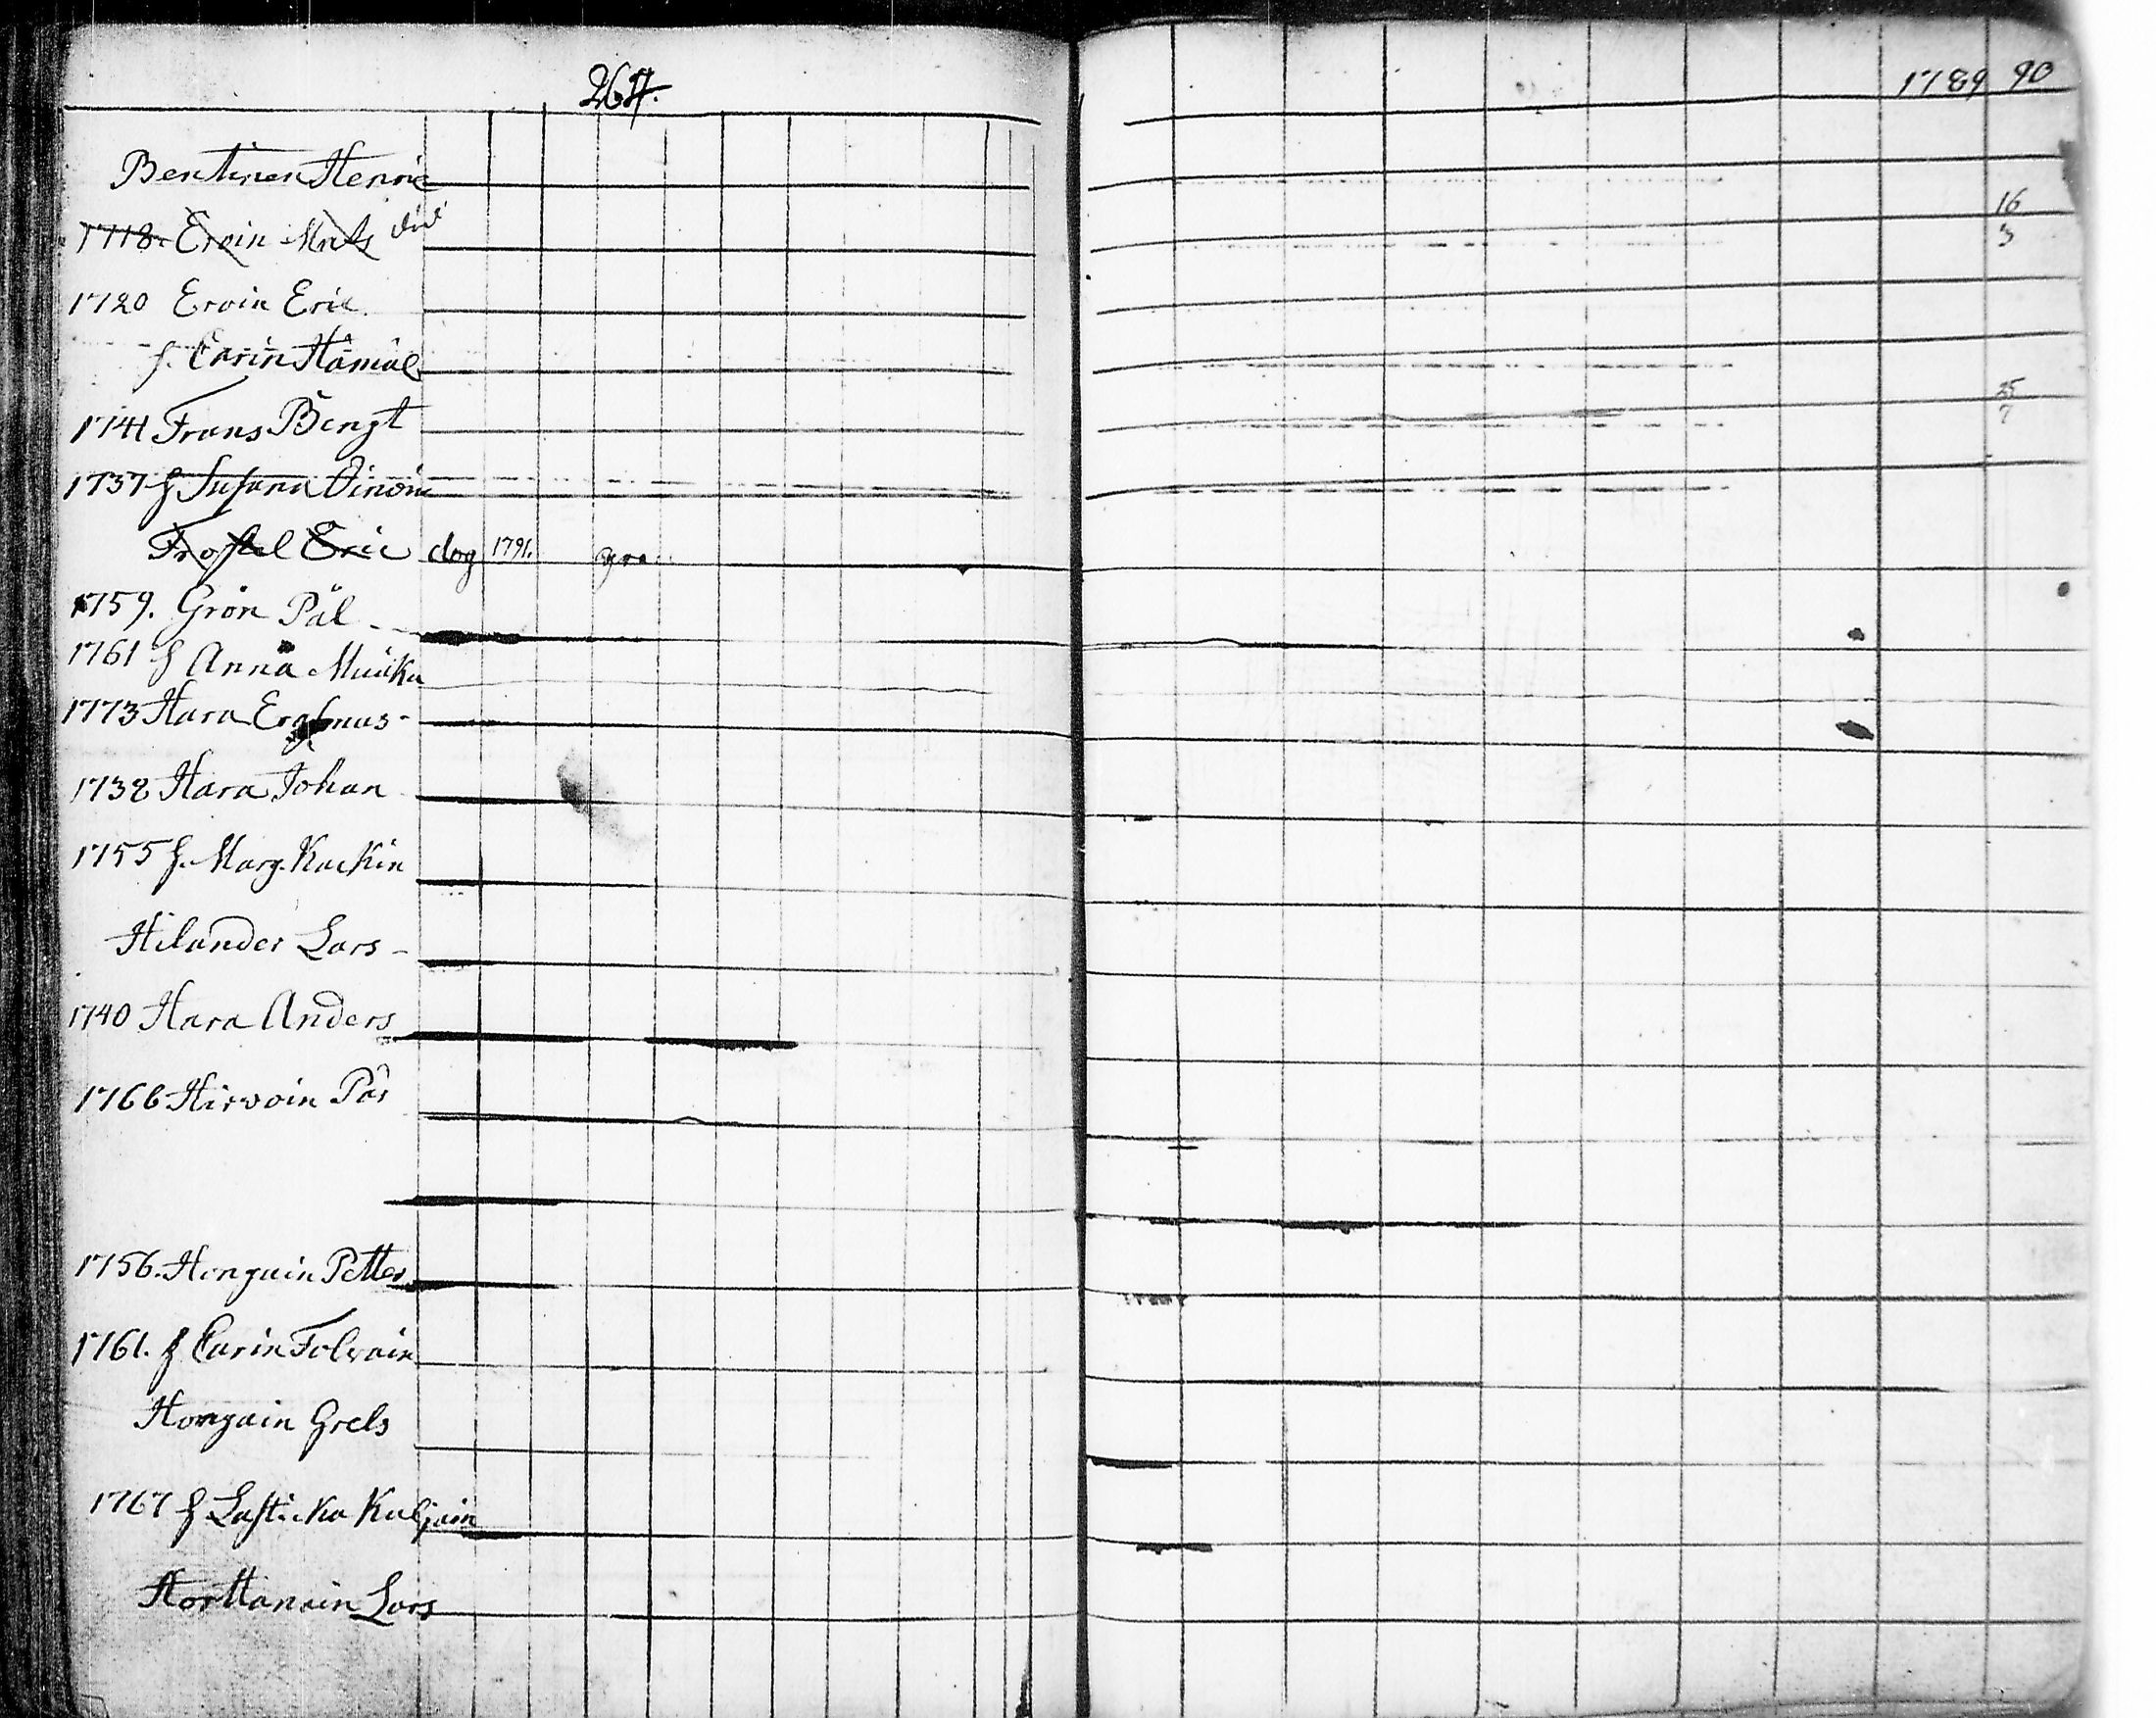 264.
1789 90
Bentinen Henric
1718. Ervin Mats död
16
3
1720 Ervin Eric
f. Carin Hämäl
1741 Frans Bengt
25
7
1737 f Susana Oinoin
Frostel Eric dog 1791.
1759. Grön Pål
1761 f Anna Muuka
1773 Hara Erasmus
1738 Hara Johan
1755 f. Marg. Kackin
Hilander Lars
1740 Hara Anders
1766 Hirvoin Pår
1756. Honguin Petter
1761. f Carin Tolvain
Honguin Grels
1767 f Kuljuin
Horttanain Lars